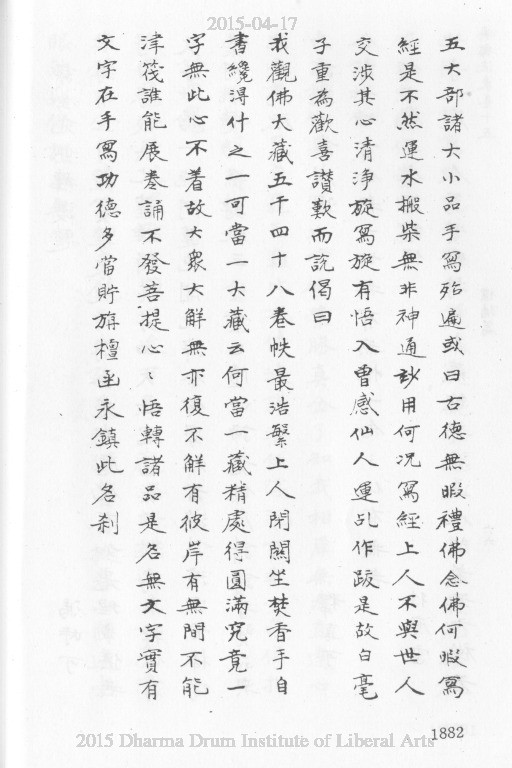 2015-04-17
五大部諸大小品手寫殆遍或曰古德無暇禮佛念佛何暇寫
經是不然運水搬柴無非神通玅用何況寫經上人不與世人
交涉其心清淨旋寫旋有悟入曾感仙人運乩作跋是故白毫
子重為歡喜讚歎而説偈曰
我觀佛大藏五千四十八卷帙最浩繁上人閉關坐焚香手自
書纔淂什之一可當一大藏云何當一藏精處得圓滿究竟一
字無此心不著故大衆大解無亦復不解有彼岸有無間不能
津筏誰能展卷誦不發菩提心〻悟轉諸品是名無文字實有
文字在手寫功德多當貯旃檀函永鎮此名刹
1882
2015 Dharma Drum Institute of Liberal Arts